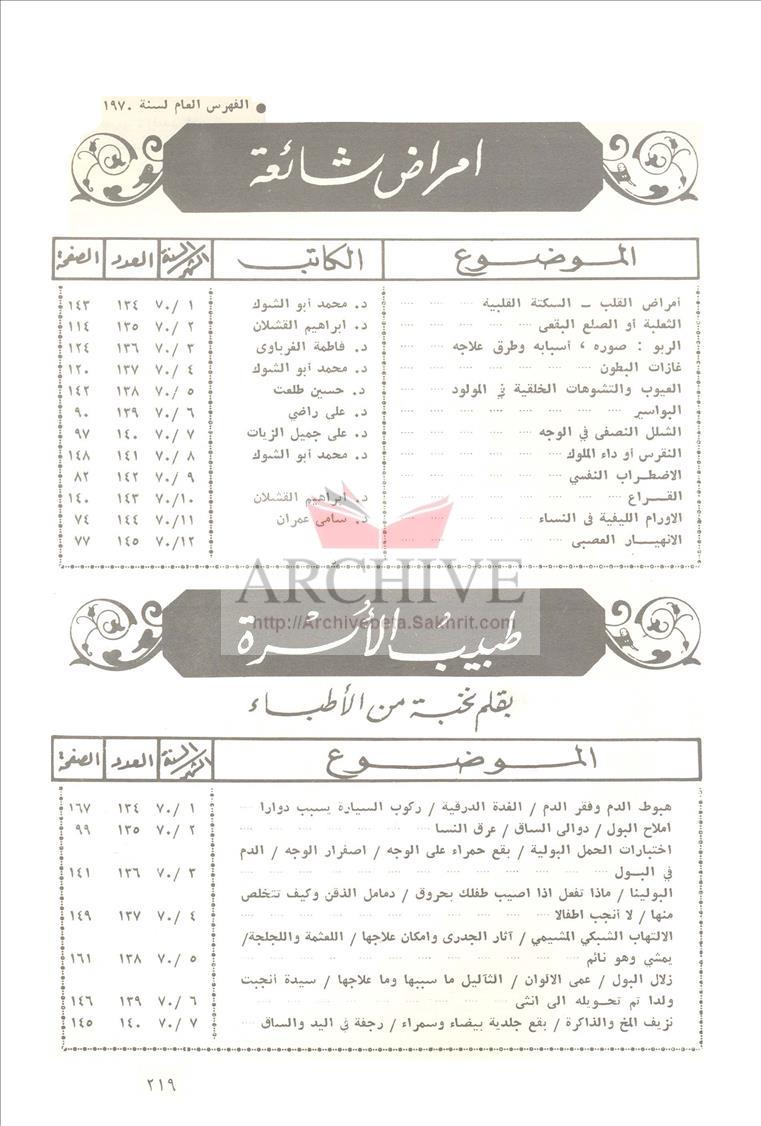 ● الفهرس العام لسنة ١٩٧٠
امراض شائعة
الموضوع الكاتب الشهر/السنة العدد الصفحة
أمراض القلب ــ السكتة القلبية د. محمد أبو الشوك ١ /٧٠ ١٣٤ ١٤٣
الثعلبة أو الصلع البقعى د. ابراهيم القشلان ٢ /٧٠ ١٣٥ ١١٤
الربو : صوره ، أسبابه وطرق علاجه د. فاطمة الفرباوى ٣ /٧٠ ١٣٦ ١٢٤
غازات البطون د. محمد أبو الشوك ٤ /٧٠ ١٣٧ ١٢٠
العيوب والتشوهات الخلقية في المولود د. حسين طلعت ٥ /٧٠ ١٣٨ ١٤٢
البواسير د. على راضي ٦ /٧٠ ١٣٩ ٩٠
الشلل النصفى في الوجه د. على جميل الزيات ٧ /٧٠ ١٤٠ ٩٧
النقرس أو داء الملوك د. محمد أبو الشوك ٨ /٧٠ ١٤١ ١٤٨
الاضطراب النفسي ٩ /٧٠ ١٤٢ ٨٢
القراع د. ابراهيم القشلان ٧٠/١٠ ١٤٣ ١٤٠
الاورام الليفية فى النساء د. سامى عمران ٧٠/١١ ١٤٤ ٧٤
الانهيار العصبى ٧٠/١٢ ١٤٥ ٧٧
ARCHIVE
http://Archivebeta.Sakhrit.com
طبيب الأسرة
بقلم نخبة من الأطباء
الموضوع الشهر/السنة العدد الصفحة
هبوط الدم وفقر الدم / الغدة الدرقية / ركوب السيارة يسبب دوارا ١ /٧٠ ١٣٤ ١٦٧
املاح البول / دوالى الساق / عرق النسا ٢ /٧٠ ١٣٥ ٩٩
اختبارات الحمل البولية / بقع حمراء على الوجه / اصفرار الوجه / الدم
في البول ٣ /٧٠ ١٣٦ ١٤١
البولينا / ماذا تفعل اذا اصيب طفلك بحروق / دمامل الذقن وكيف تتخلص
منها / لا أنجب اطفالا ٤ /٧٠ ١٣٧ ١٤٩
الالتهاب الشبكي المشيمي / آثار الجدرى وامكان علاجها / اللعثمة واللجلجة/
يمشي وهو نائم ٥ /٧٠ ١٣٨ ١٦١
زلال البول / عمى الالوان / الثآليل ما سببها وما علاجها / سيدة أنجبت
ولدا تم تحويله الى انثى ٦ /٧٠ ١٣٩ ١٤٦
نزيف المخ والذاكرة / بقع جلدية بيضاء وسمراء / رجفة في اليد والساق ٧ /٧٠ ١٤٠ ١٤٥
٢١٩